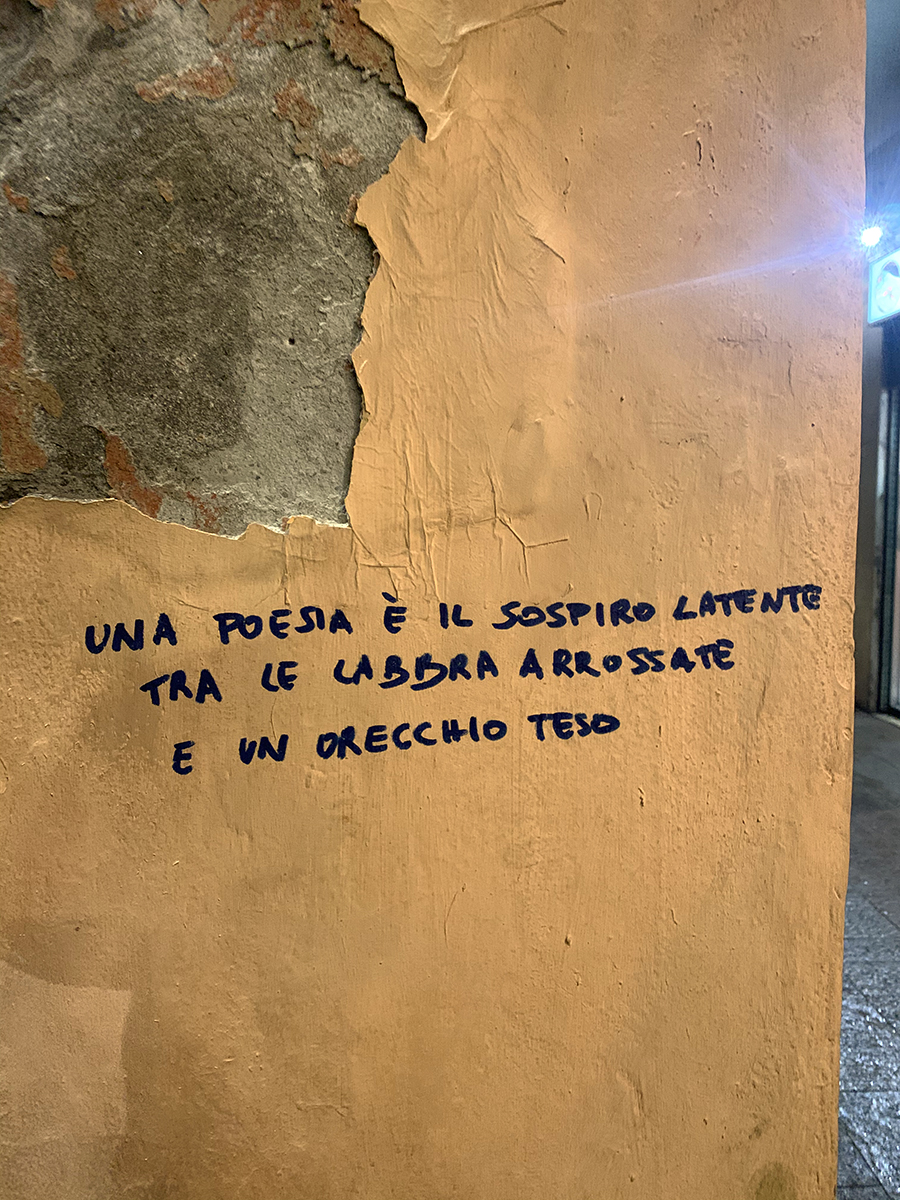 UNA POESIA È IL SOSPIRO LATENTE
TRA LE LABBRA ARROSSATE
E UN ORECCHIO TESO